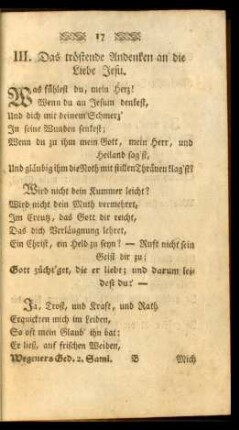 17
III. Das tröstende Andenken an die
Liebe Jesu.
Was fühlest du, mein Herz!
Wenn du an Jesum denkest,
Und dich mit deinem Schmerz'
In seine Wunden senkest;
Wenn du zu ihm mein Gott, mein Herr, und
Heiland sag'st,
Und gläubig ihm die Noth mit stillen Thränen klag'st?
Wird nicht dein Kummer leicht?
Wird nicht dein Muth vermehret,
Im Creutz, das Gott dir reicht,
Das dich Verläugnung lehret,
Ein Christ, ein Held zu seyn? — Ruft nicht sein
Geist dir zu:
Gott zücht'get, die er liebet und darum lei-
dest du? —
Ja, Trost, und Kraft, und Rath
Erquickten mich im Leiden,
So oft mein Glaub' ihn bat:
Er ließ, auf frischen Weiden,
Wegeners Ged. 2. Saml. B Mich